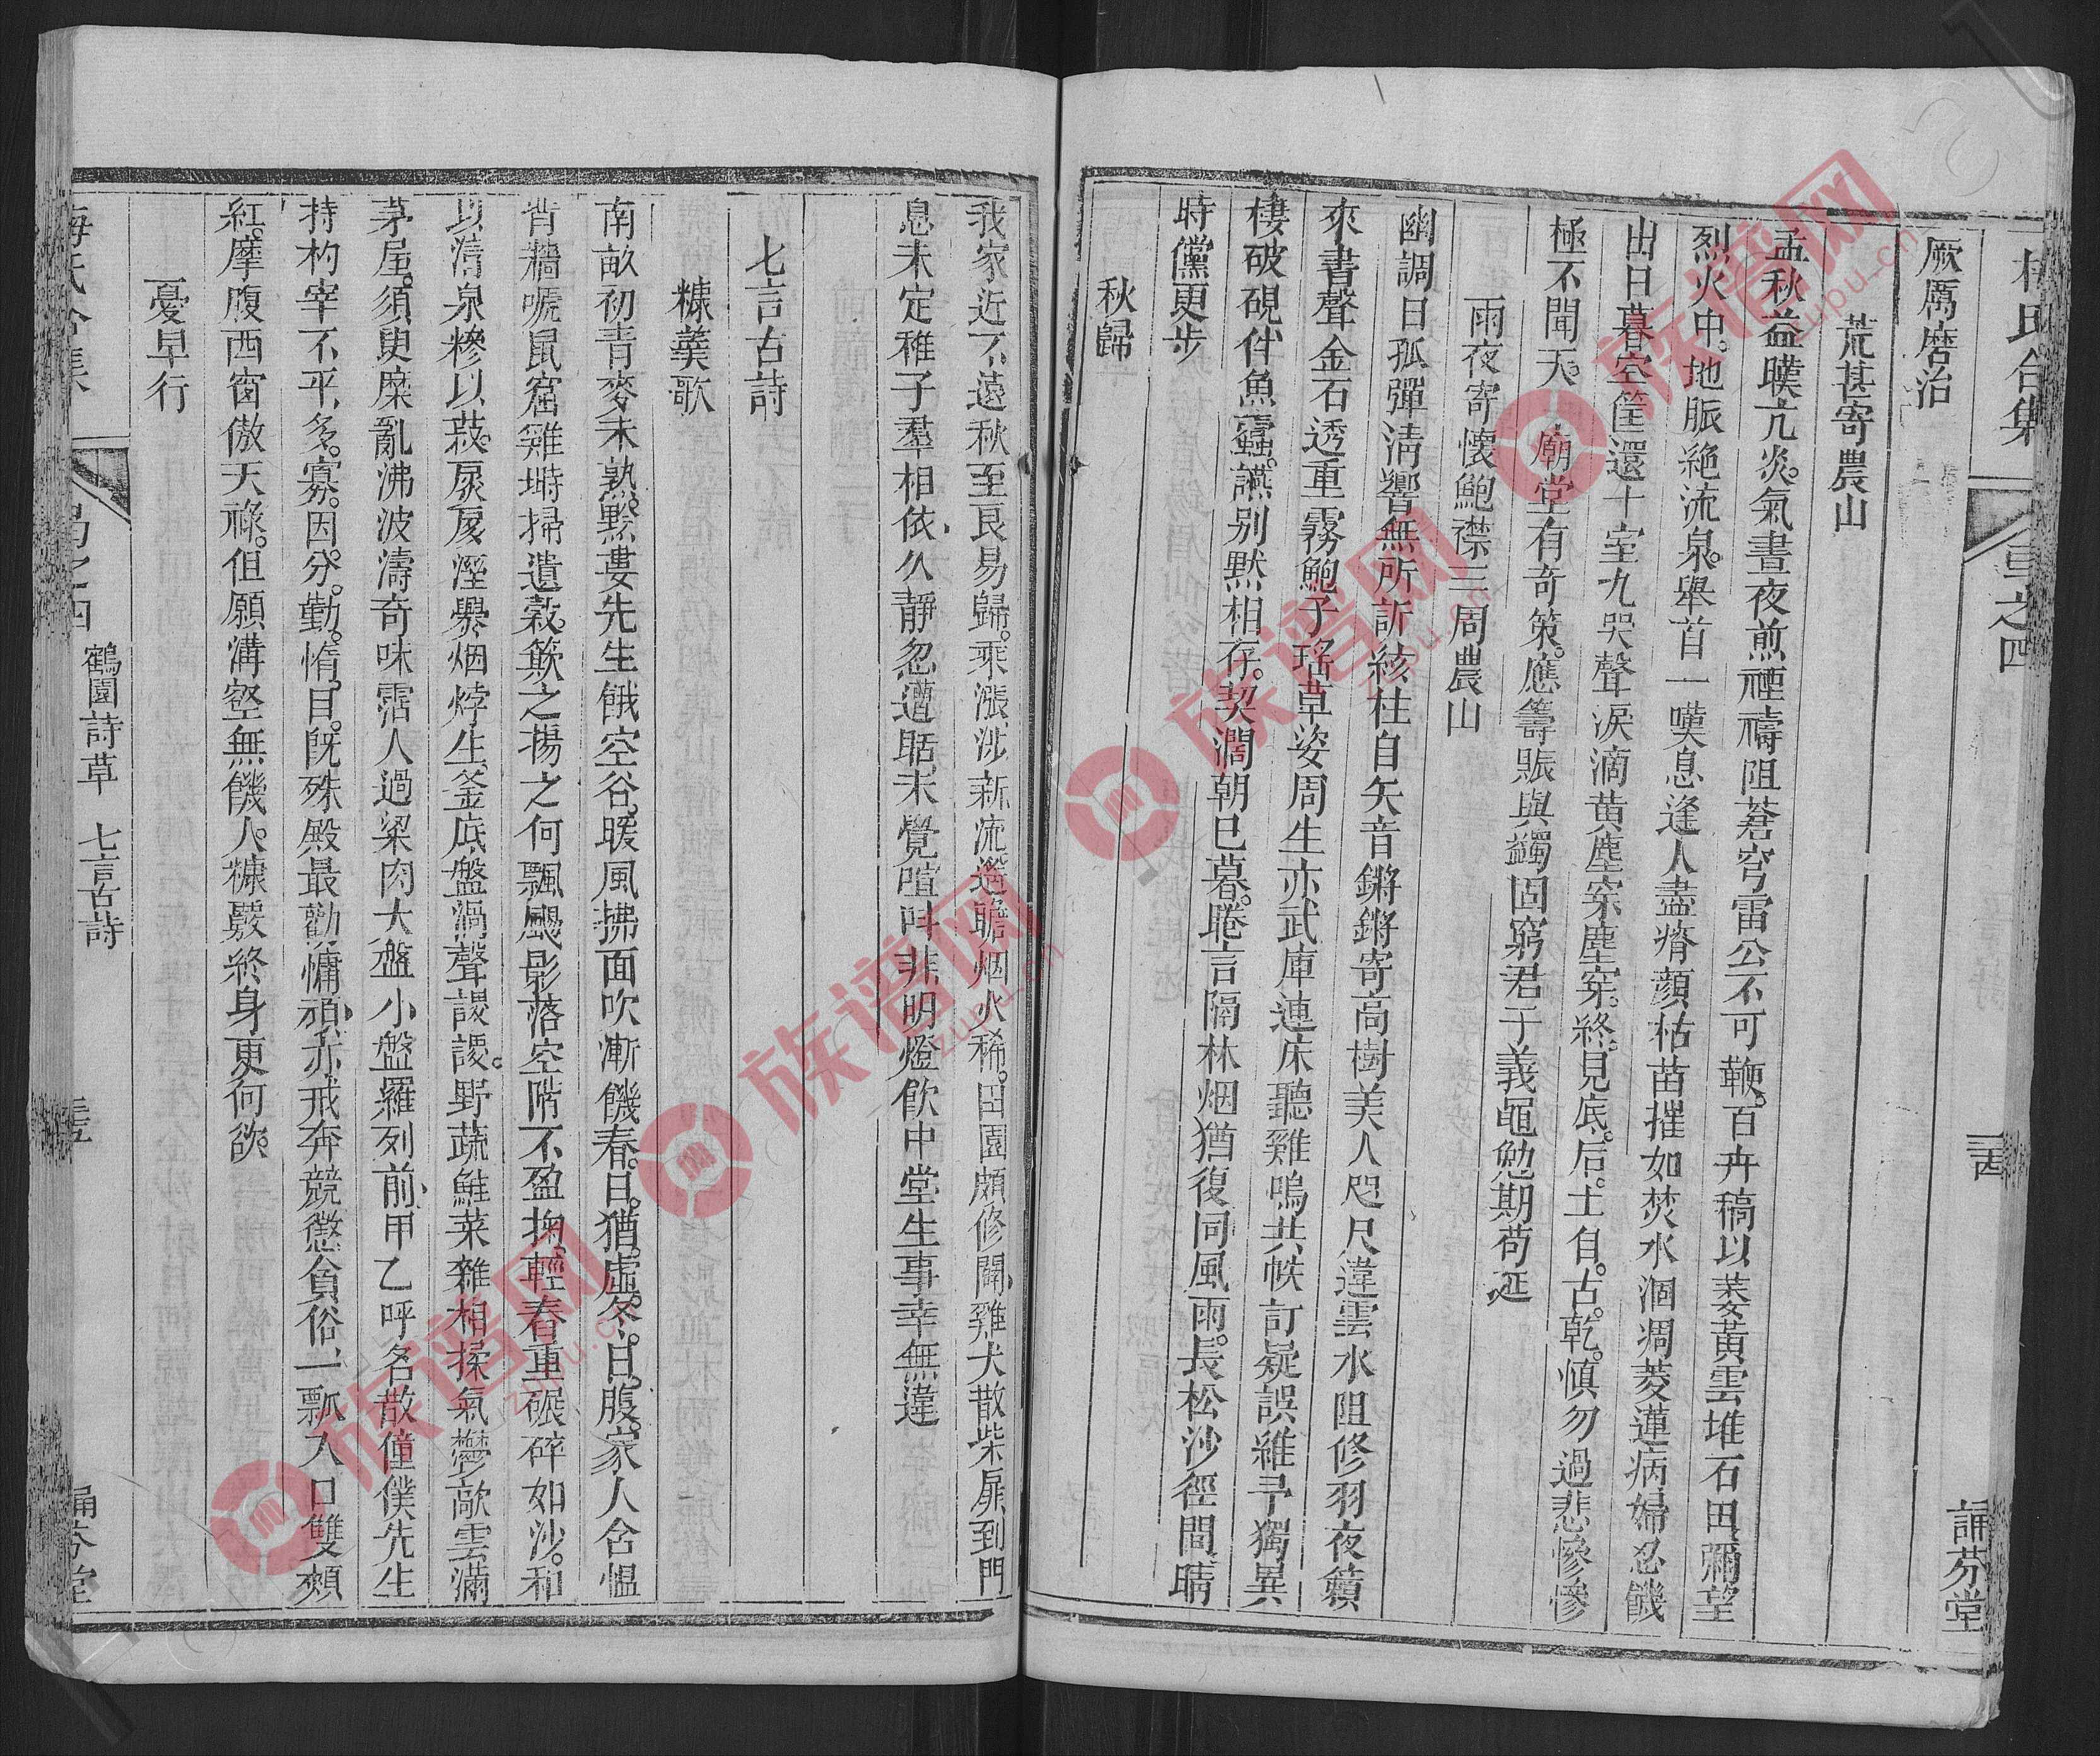 梅氏合集
之四
誦芬堂
厥厲磨治
荒甚寄農山
孟秋益暵亢炎氣晝夜煎禋禱阻蒼穹雷公不可鞭百卉稿以萎黃雲堆石田彌望
烈火中地脈絶流泉舉首一嘆息逢人盡瘠顏枯苗摧如焚水涸凋菱蓮病婦忍饑
出日暮空筐還十室九哭聲淚滴黃塵穿塵穿終見底后土自古乾慎勿過悲慘慘
極不聞天廟堂有奇策應籌賑與蠲固窮君子義黽勉期苟延
雨夜寄懷鮑襟三周農山
幽調日孤彈清響無所訴絃柱自矢音鏘鏘寄高樹美人咫尺違雲水阻修羽夜籟
來書聲金石透重霧鮑子瑤草姿周生亦武庫連床聽雞鳴共帙訂疑誤維予獨異
棲破硯伴魚蠹讌别默相存契濶朝已暮睠言隔林烟猶復同風雨長松沙徑間晴
時儻更步
秋歸
我家近不遠秋至良易歸乘漲涉新流遥瞻烟火稀田園頗修闢雞犬散柴扉到門
息未定稚子羣相依久靜忽遭聒未覺喧叫非明燈飲中堂生事幸無違
七言古詩
糠羹歌
南畝初青麥未熟黔婁先生餓空谷暖風拂面吹漸饑春日猶虛冬日腹家人舍愠
背牆嗁鼠窟雞塒掃遺穀簸之揚之何飄颺影落空階不盈掬輕舂重碾碎如沙和
以清泉糝以蔌㞘㞔溼爨烟烰生釜底盤渦聲謖謖野蔬鮭菜雜相揉氣鬱歊雲滿
茅屋須臾糜亂沸波濤奇味霑人過粱肉大盤小盤羅列前甲乙呼名散僮僕先生
持杓宰不平多寡因分勤惰目既殊殿最勸慵頑亦戒奔競懲貪俗一瓢入口雙頰
紅摩腹西窗傲天祿但願溝壑無饑人糠覈終身更何欲
憂旱行
鶴園詩草　七言古詩